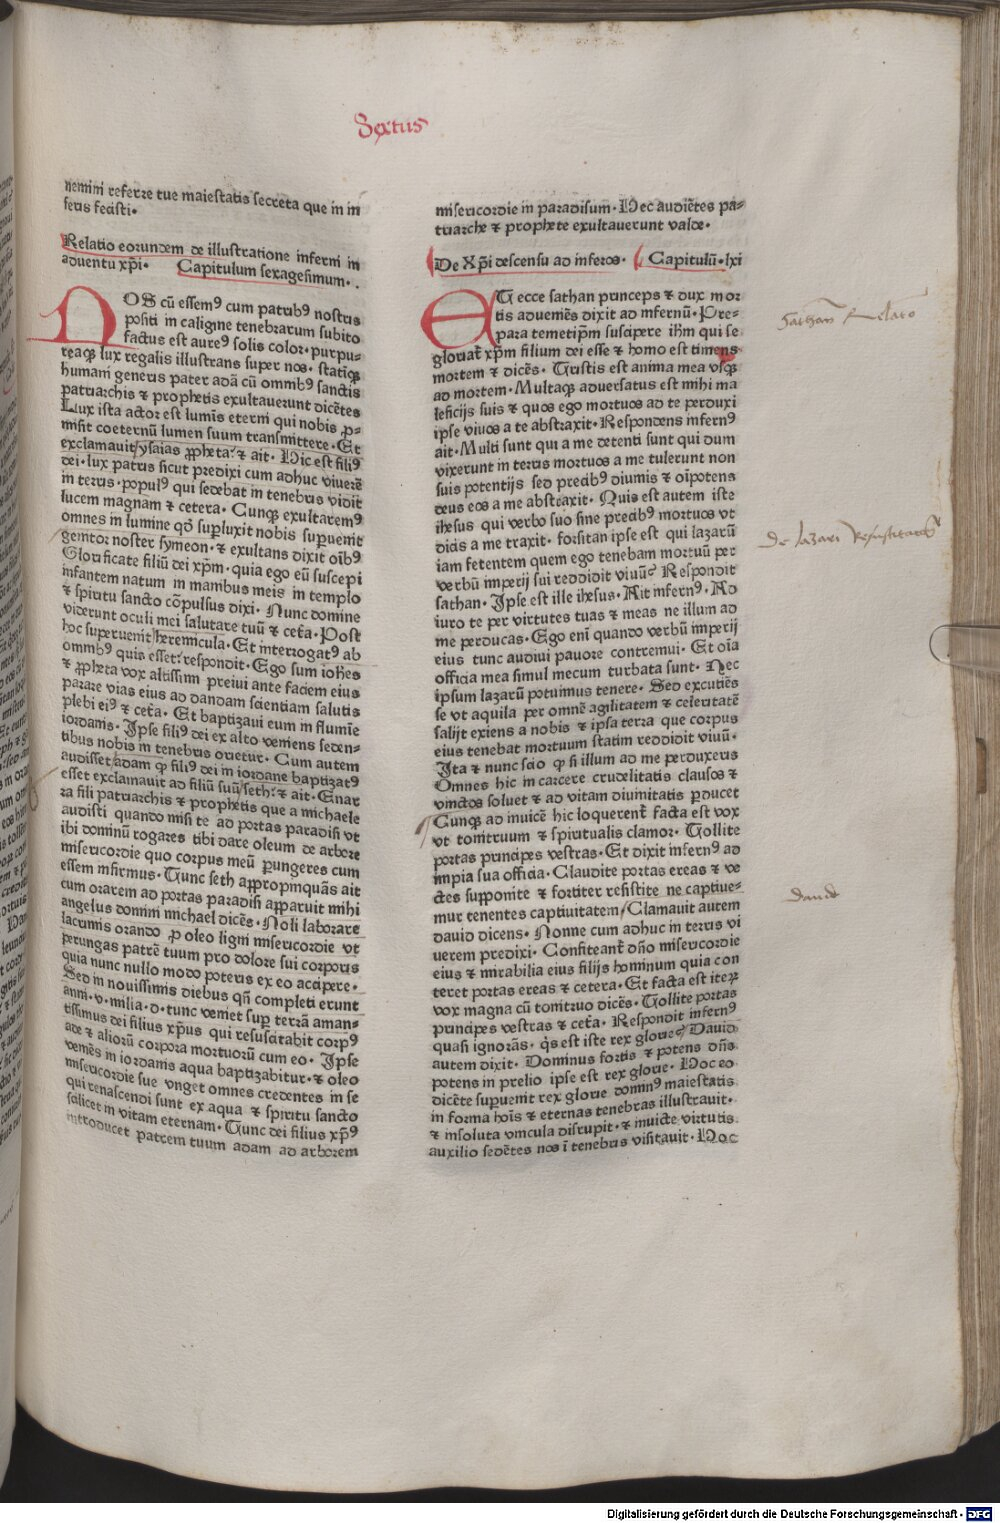 Sextus
nemini referre tue maiestatis secreta que in in
feris fecisti.
Relatio eorundem de illustratione inferni in
aduentu xp̄i. Capitulum sexagesimum.
NOS cū essemꝰ cum patribꝰ nostris
positi in caligine tenebrarum subito
factus est aureꝰ solis color. purpu-
reaqꝫ lux regalis illustrans super nos. statiqꝫ
humani generis pater adā cū omnibꝰ sanctis
patriarchis ⁊ prophetis exultauerunt dicētes
Lux ista actor est lumīs eterni qui nobis ꝓ-
misit coeternū lumen suum transmittere. Et
exclamauit ysaias ꝓpheta. ⁊ ait. Hic est filiꝰ
dei. lux patris sicut predixi cum adhuc viuerē
in terris. populꝰ qui sedebat in tenebris vidit
lucem magnam ⁊ cetera. Cunqꝫ exultaremꝰ
omnes in lumine qd̄ suꝑluxit nobis suꝑuenit
genitor noster symeon. ⁊ exultans dixit oībꝰ
Glorificate filiū dei xp̄m. quia ego eū suscepi
infantem natum in manibus meis in templo
⁊ spiritu sancto cōpulsus dixi. Nunc domine
viderunt oculi mei salutare tuū ⁊ cet̄a. Post
hoc superuenit heremicula. Et interrogatꝰ ab
omnibꝰ quis esset. respondit. Ego sum ioh̄es
⁊ ꝓpheta vox altissimi preiui ante faciem eius
parare vias eius ad dandam scientiam salutis
plebi eiꝰ ⁊ cet̄a. Et baptizaui eum in flumīe
iordanis. Ipse filiꝰ dei ex alto veniens seden-
tibus nobis in tenebris orietur. Cum autem
audisset adam qꝫ filiꝰ dei in iordane baptizatꝰ
esset exclamauit ad filiū suū seth. ⁊ ait. Enar
ra fili patriarchis ⁊ prophetis que a michaele
audisti quando misi te ad portas paradisi vt
ibi dominū rogares tibi dare oleum de arbore
misericordie quo corpus meū pungeres cum
essem infirmus. Tunc seth appropinquās ait
cum orarem ad portas paradisi apparuit mihi
angelus domini michael dicēs. Noli laborare
lacrimis orando ꝓ oleo ligni misericordie vt
perungas patrē tuum pro dolore sui corporis
quia nunc nullo modo poteris ex eo accipere.
Sed in nouissimis diebus qn̄ completi erunt
anni. v. milia. d. tunc veniet suꝑ terrā aman-
tissimus dei filius xp̄us qui resuscitabit corpꝰ
ade ⁊ aliorū corpora mortuorū cum eo. Ipse
veniēs in iordanis aqua baptizabitur. ⁊ oleo
misericordie sue vnget omnes credentes in se
qui renascendi sunt ex aqua ⁊ spiritu sancto
salicet in vitam eternam. Tunc dei filius xp̄ꝰ
introducet patrem tuum adam ad arborem
misericordie in paradisum. Hec audiētes pa-
triarche ⁊ prophete exultauerunt valde.
De Xp̄i descensu ad inferos. Capitulū. lxi
ET ecce sathan princeps ⁊ dux mor
tis adueniēs dixit ad infernū. Pre-
para temetip̄m suscipere ih̄m qui se
gloriat̄ xp̄m filium dei esse ⁊ homo est timens
mortem ⁊ dicēs. Tristis est anima mea vsqꝫ
ad mortem. Multaqꝫ aduersatus est mihi ma
leficijs suis ⁊ quos ego mortuos ad te perduxi
ipse viuos a te abstraxit. Respondens infernꝰ
ait. Multi sunt qui a me detenti sunt qui dum
vixerunt in terris mortuos a me tulerunt non
suis potentijs sed precibꝰ diuinis ⁊ oīpotens
deus eos a me abstraxit. Quis est autem iste
ihesus qui verbo suo sine precibꝰ mortuos vt
dicis a me traxit. forsitan ipse est qui lazarū
iam fetentem quem ego tenebam mortuū per
verbū imperij sui reddidit viuū? Respondit
sathan. Ipse est ille ihesus. Ait infernꝰ. Ad
iuro te per virtutes tuas ⁊ meas ne illum ad
me perducas. Ego enī quando verbū imperij
eius tunc audiui pauore contremui. Et oīa
officia mea simul mecum turbata sunt. Nec
ipsum lazarū potuimus tenere. Sed excutiēs
se vt aquila per omnē agilitatem ⁊ celeritatē
salijt exiens a nobis ⁊ ipsa terra que corpus
eius tenebat mortuum statim reddidit viuū.
Ita ⁊ nunc scio qꝫ si illum ad me perduxeris
Omnes hic in carcere crudelitatis clausos ⁊
vinctos soluet ⁊ ad vitam diuinitatis ꝑducet
Cunqꝫ ad inuicē hic loquerent̄ facta est vox
vt tonitruum ⁊ spiritualis clamor. Tollite
portas principes vestras. Et dixit infernꝰ ad
impia sua officia. Claudite portas ereas ⁊ ve
ctes supponite ⁊ fortiter resistite ne captiue-
mur tenentes captiuitatem. Clamauit autem
dauid dicens. Nonne cum adhuc in terris vi
uerem predixi. Confiteant̄ dn̄o misericordie
eius ⁊ mirabilia eius filijs hominum quia con
teret portas ereas ⁊ cetera. Et facta est iteꝝ
vox magna cū tonitruo dicēs. Tollite portas
principes vestras ⁊ cet̄a. Respondit infernꝰ
quasi ignorās. q̇s est iste rex glorie? Dauid
autem dixit. Dominus fortis ⁊ potens dn̄s
potens in prelio ipse est rex glorie. Hoc eo
dicēte suꝑuenit rex glorie dominꝰ maiestatis
in forma hoīs ⁊ eternas tenebras illustrauit.
⁊ insoluta vincula disrupit. ⁊ inuicte virtutis
auxilio sedētes nos ī tenebris visitauit. Hoc
De lazari Resuscitatōe
dauid
Digitalisierung gefördert durch die Deutsche Forschungsgemeinschaft - DFG